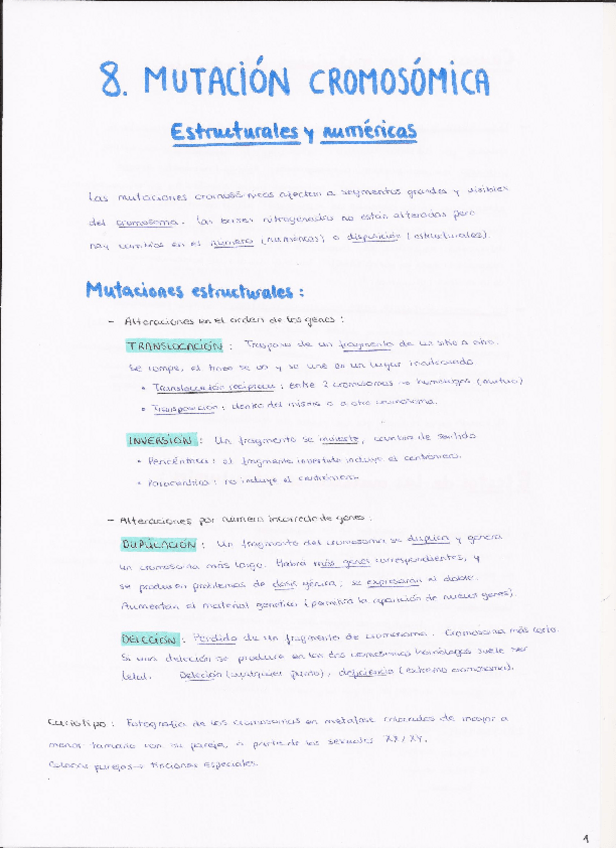 8. MUTACIÓN CROMOSÓMICA
Estructurales y numéricas
Las mutaciones cromosómicas afectan a segmentos grandes y visibles
del cromosoma. Las bases nitrogenadas no están alteradas pero
hay cambios en el número (numéricas) o disposición (estructurales).
Mutaciones estructurales:
- Alteraciones en el orden de los genes:
TRANSLOCACIÓN: Traspaso de un fragmento de un sitio a otro.
Se rompe, el trozo se va y se une en un lugar inadecuado.
• Translocación recíproca: entre 2 cromosomas homólogos (mutuo)
• Transposición: dentro del mismo o a otro cromosoma.
INVERSIÓN: Un fragmento se invierte, cambia de sentido
• Pericéntrica: el fragmento invertido incluye el centrómero.
• Paracéntrica: no incluye el centrómero
- Alteraciones por número incorrecto de genes.
DUPLICACIÓN: Un fragmento del cromosoma se duplica y genera
un cromosoma más largo. Habrá más genes correspondientes, y
se producen problemas de dosis génica: se expresaran el doble.
Aumentan el material genético (permitirá la aparición de nuevos genes).
DELECCIÓN: Pérdida de un fragmento de cromosoma. Cromosoma más corto.
Si una delección se produce en los dos cromosomas homólogos suele ser
letal. Delección (cualquier punto), deficiencia (extremo cromosoma).
Cariotipo: Fotografía de los cromosomas en metafase ordenados de mayor a
menor tamaño con su pareja, a parte de los sexuales XX/XY.
parejas → tinciones especiales.
1